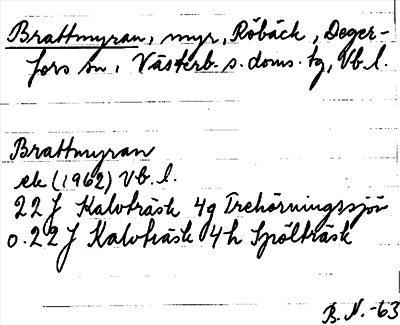 Brattmyran, myr, Röbäck, Deger-
fors sn, Västerb. s. doms. tg, Vb. l.
Brattmyran
ek (1962) Vb. l.
22 J Kalvträsk 4g Trehörningssjön
o. 22 J Kalvträsk 4h Spölträsk
B. N. -63